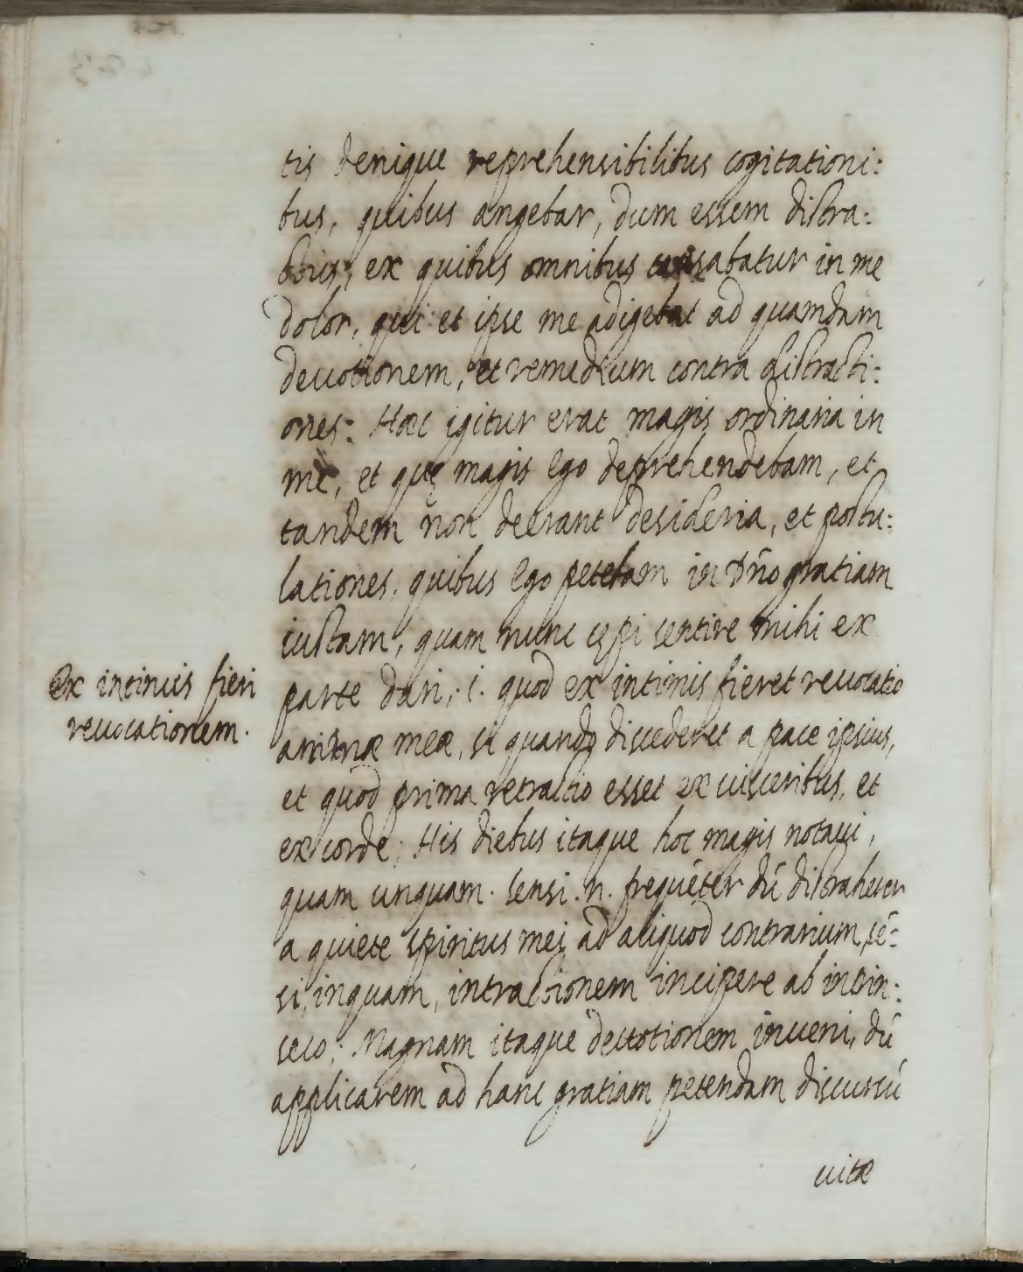 tis denique reprehensibilibus cogitationi:
bus, quibus angebar, dum essem distra:
ctus; ex quibus omnibus causabatur in me
dolor, qui et ipse me adigebat ad quamdam
deuotionem, et remedium contra distracti:
ones: Hæc igitur erat magis ordinaria in
me, et quę magis ego deprehendebam, et
tandem non deerant desideria, et postu:
lationes, quibus ego petebam in Dño gratiam
iustam, quam nunc cępi sentire mihi ex
Ex intimis fieri
reuocationem.
parte dari, .i. quod ex intimis fieret reuocatio
animæ meæ, si quando discederet a pace ipsius,
et quod prima retractio esset ex uisceribus, et
ex corde; His diebus itaque hoc magis notaui,
quam unquam. sensi .n. frequēter dū distraherer
a quiete spiritus mei ad aliquod contrarium, sē:
si, inquam, intractionem incipere ab intrin:
seco; Magnam itaque deuotionem inueni, dū
applicarem ad hanc gratiam petendam discursū
uitæ